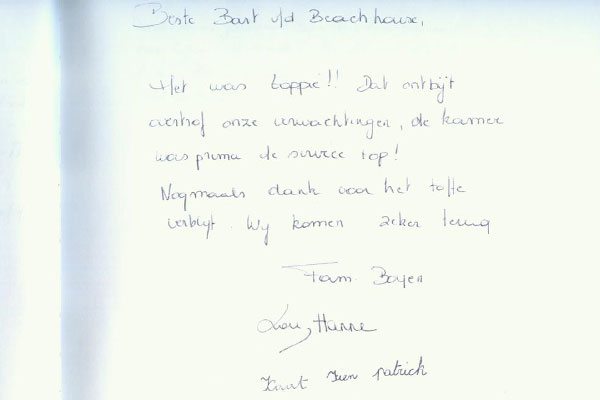 Beste Bart v/d Beachhouse,
Het was toppie!! Dat ontbijt
overtrof onze verwachtingen, de kamer
was prima de service top!
Nogmaals dank voor het toffe
verblijf. Wij komen zeker terug
Team Boyen
Lou, Hanne
patrick